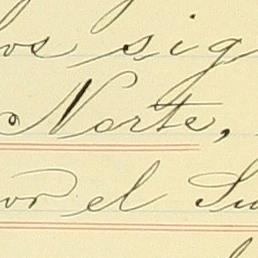 os sig
Norte,
or el Su